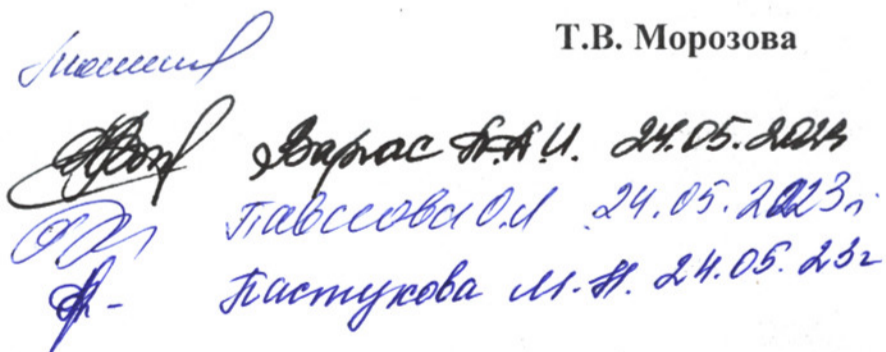 Т.В. Морозова
Варгас А.А.И. 24.05.2023
Павлова О.Л 24.05.2023г.
Пастухова М.Н. 24.05.23г